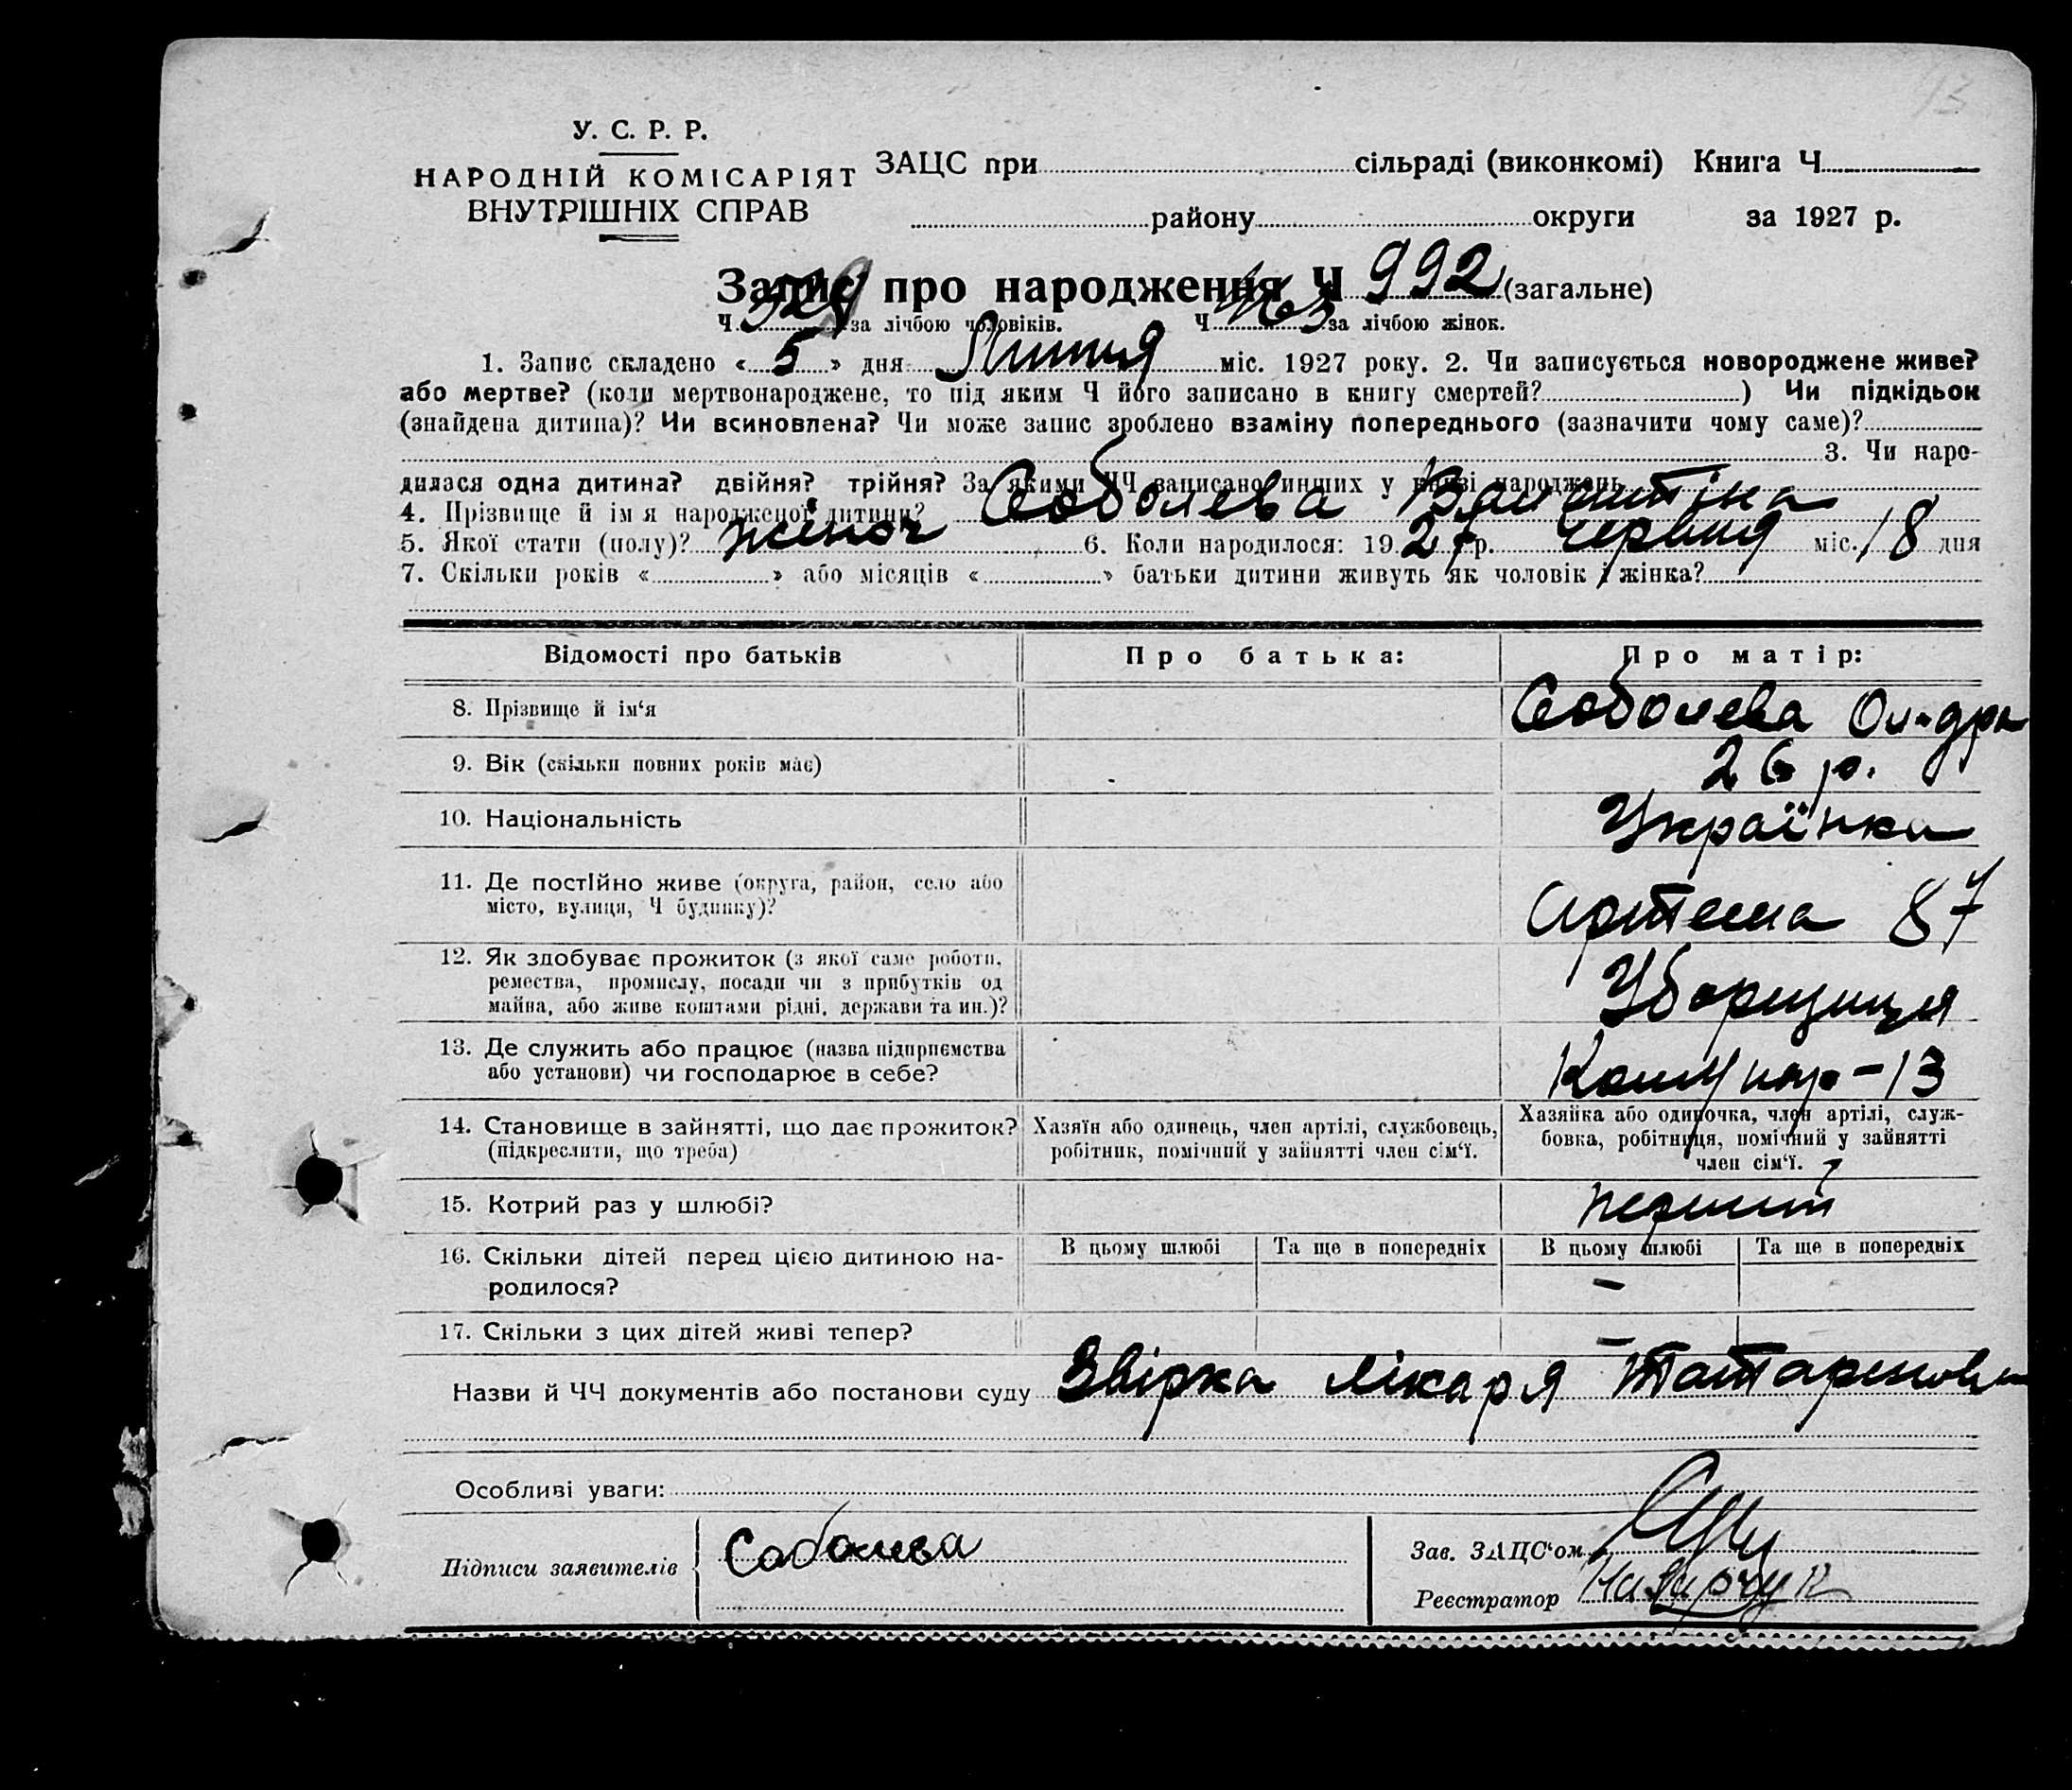 У. С. Р. Р.
НАРОДНІЙ КОМІСАРІЯТ
ВНУТРІШНІХ СПРАВ
ЗАЦС при сільраді (виконкомі) Книга Ч
району округи за 1927 р.
Запис про народження Ч 992 (загальне)
Ч 529 за лічбою чоловіків. Ч 463 за лічбою жінок.
1. Запис складено « 5 » дня Липня міс. 1927 року. 2. Чи записується новороджене живе?
або мертве? (коли мертвонароджене, то під яким Ч його записано в книгу смертей? ) Чи підкідьок
(знайдена дитина)? Чи всиновлена? Чи може запис зроблено взаміну попереднього (зазначити чому саме)?
3. Чи наро-
дилася одна дитина? двійня? трійня? За якими ЧЧ записано инших у книзі народжень
4. Прізвище й ім я народженої дитини? Соболева Валентіна
5. Якої стати (полу)? жіноч 6. Коли народилося: 19 27 р. червня міс. 18 дня
7. Скільки років « » або місяців « » батьки дитини живуть як чоловік і жінка?
Відомості про батьків Про батька: Про матір:
8. Прізвище й ім‘я Соболева Ол-дра
9. Вік (скільки повних років має) 26 р.
10. Національність Українка
11. Де постійно живе (округа, район, село або
місто, вулиця, Ч будинку)? Артема 87
12. Як здобуває прожиток (з якої саме роботи,
ремества, промислу, посади чи з прибутків од
майна, або живе коштами рідні, держави та ин.)? Уборщиця
13. Де служить або працює (назва підприємства
або установи) чи господарює в себе? Комунар-13
14. Становище в зайнятті, що дає прожиток?
(підкреслити, що треба)
Хазяїн або одинець, член артілі, службовець,
робітник, помічний у зайнятті член сім‘ї.
Хазяйка або одиночка, член артілі, служ-
бовка, робітниця, помічний у зайнятті
член сім‘ї.
15. Котрий раз у шлюбі? перший
16. Скільки дітей перед цією дитиною на-
родилося?
В цьому шлюбі Та ще в попередніх В цьому шлюбі Та ще в попередніх
–
17. Скільки з цих дітей живі тепер? –
Назви й ЧЧ документів або постанови суду Звірка лікаря Татаренова
Особливі уваги:
Підписи заявителів Соболева
Зав. ЗАЦС‘ом
Реєстратор